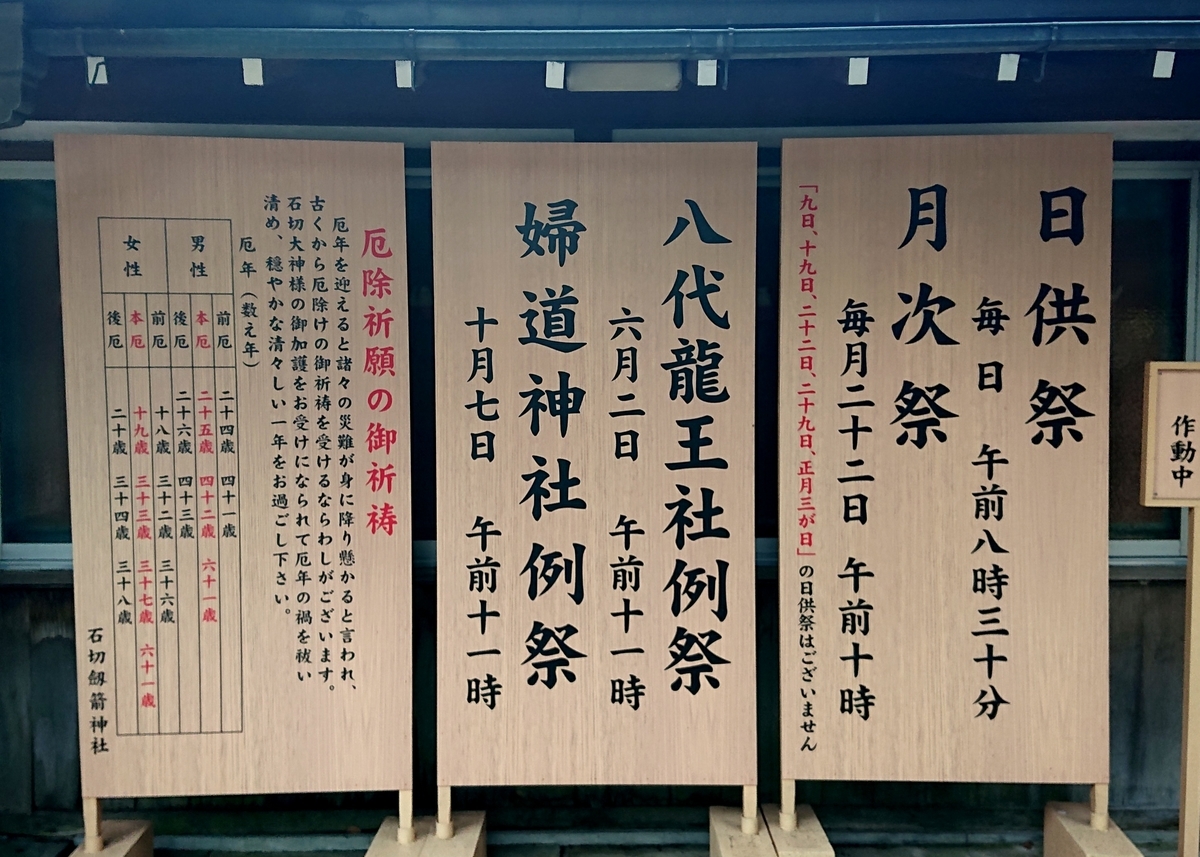 作動中
日供祭
毎日　午前八時三十分
月次祭
毎月二十二日　午前十時
「九日、十九日、二十二日、二十九日、正月三が日」の日供祭はございません
八代龍王社例祭
六月二日　午前十一時
婦道神社例祭
十月七日　午前十一時
厄除祈願の御祈祷
厄年を迎えると諸々の災難が身に降り懸かると言われ、
古くから厄除けの御祈祷を受けるならわしがございます。
石切大神様の御加護をお受けになられて厄年の禍を祓い
清め、穏やかな清々しい一年をお過ごし下さい。
厄年（数え年）
男性
前厄　二十四歳　四十一歳
本厄　二十五歳　四十二歳　六十一歳
後厄　二十六歳　四十三歳
女性
前厄　十八歳　三十二歳　三十六歳
本厄　十九歳　三十三歳　三十七歳　六十一歳
後厄　二十歳　三十四歳　三十八歳
石切劔箭神社